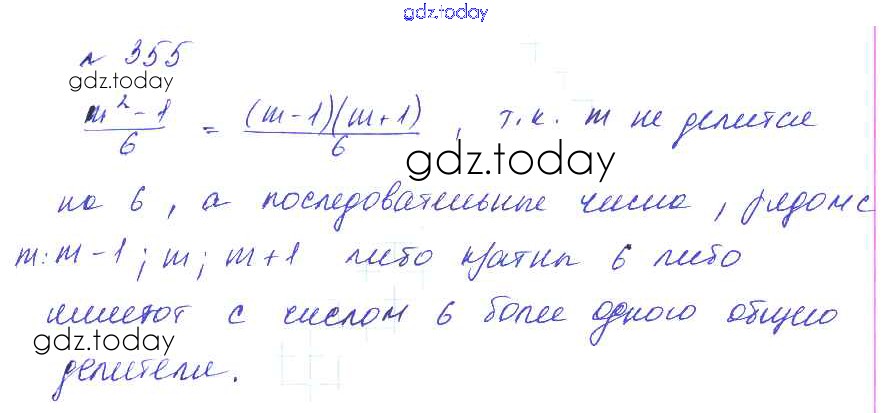 gdz.today
№ 355
gdz.today
m² - 1 / 6 = (m-1)(m+1) / 6 , т.к. m не делится
gdz.today
на 6, а последовательные числа, рядом с
m: m-1; m; m+1 либо кратны 6 либо
имеют с числом 6 более одного общего
gdz.today
делителя.